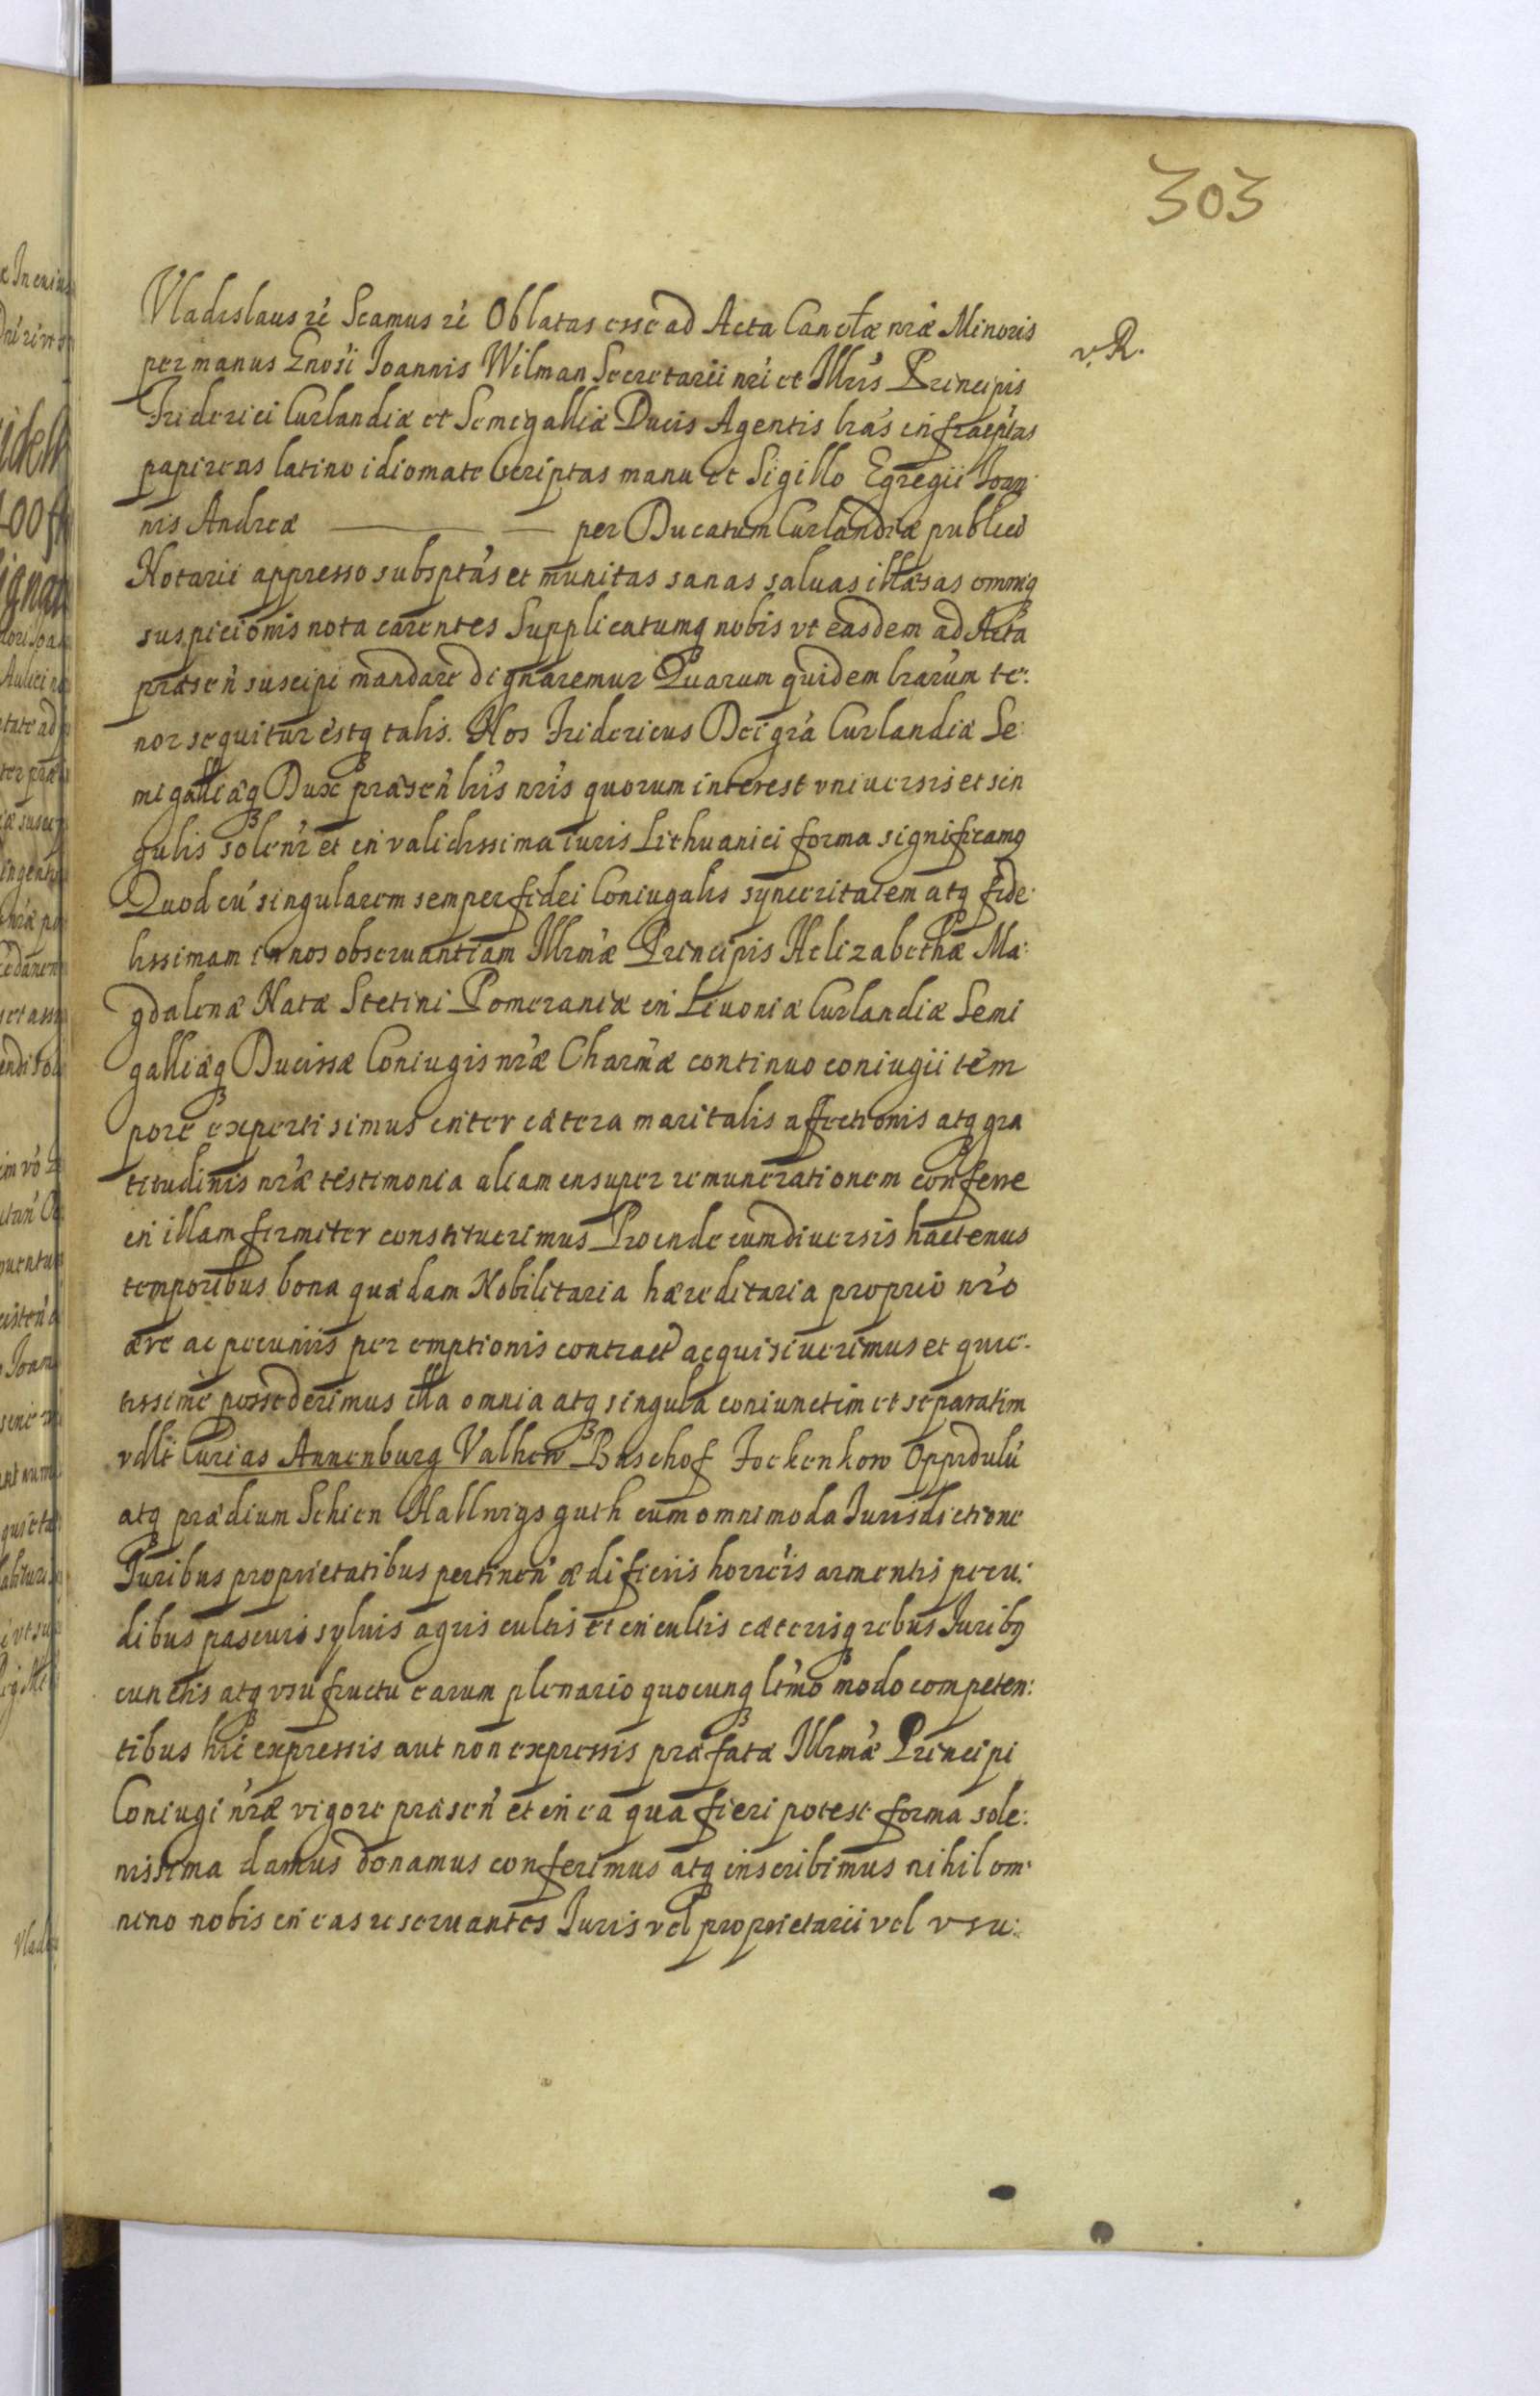 303
Vladislaus rc Scamus rc Oblatas esse ad Acta Cancłæ nræ Minoris
v. R.
per manus Gnosi Joannis Wilman Secretarii nri et Illris Principis
Friderici Curlandiæ et Semigalliæ Ducis Agentis lras infrascptas
papireas latino idiomate scriptas manu et Sigillo Egregii Joan
nis Andreæ per Ducatum Curlandiæ publico
Notarii appresso subsptas et munitas sanas saluas illæsas omniq
suspicionis nota carentes Supplicatumq nobis vt easdem ad Acta
præsen suscipi mandare dignaremur Quarum quidem lrarum te:
nor sequitur estq talis. Nos Fridericus Dei gra Curlandiæ Se:
migalliæq Dux præsen lris nris quorum interest vniuersis et sin
gulis solenr et in validissima iuris Lithuanici forma significamq
Quod cu singularem semper fidei Coniugalis synceritatem atq fide:
lissimam in nos obseruantiam Illrmæ Principis Helizabethæ Ma:
gdalenæ Natæ Stetini Pomeraniæ in Liuonia Curlandiæ Semi
galliæq Ducissæ Coniugis nræ Charmæ continuo coniugii tem
pore experti simus inter cætera maritalis affectionis atq gra
titudinis nræ testimonia aliam insuper remunerationem conferre
in illam firmiter constituerimus Proinde cum diuersis hactenus
temporibus bona quædam Nobilitaria hæreditaria proprio nro
ære ac pecuniis per emptionis contract acquisiuerimus et quie:
tissime possederimus illa omnia atq singula coniunctim et separatim
vdlt Curias Annenburg Valhow Buschof Jockenkow Oppidulu
atq prædium Schien Hallwigsguth cum omnimoda Jurisdictione
Juribus proprietatibus pertinen ædificiis horreis armentis pecu:
dibus pascuis syluis agris cultis et incultis cæterisq rebus Juribq
cunctis atq vsufructu earum plenario quocunq ltmo modo competen:
tibus hic expressis aut non expressis præfatæ Illrmæ Principi
Coniugi nræ vigore præsen et in ea qua fieri potest forma sole:
nissima damus donamus conferimus atq inscribimus nihil om:
nino nobis in eas reseruantes Juris vel proprietarii vel vsu: